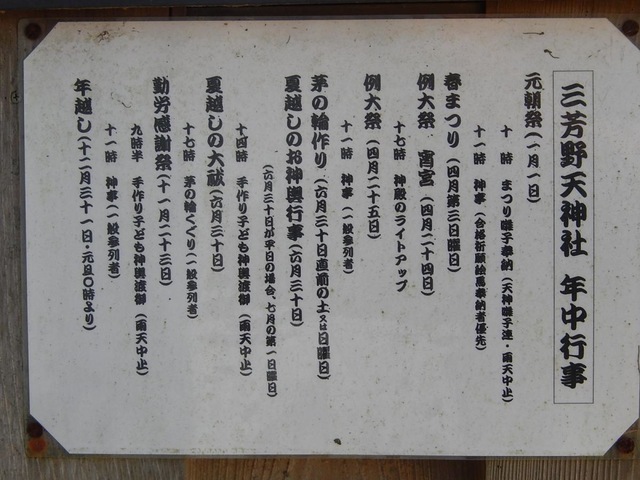 三芳野天神社 年中行事
元朝祭(一月一日)
十時 まつり囃子奉納(天神囃子連・雨天中止)
十一時 神事(合格祈願絵馬奉納者優先)
春まつり(四月第三日曜日)
例大祭 宵宮(四月二十四日)
十七時 神殿のライトアップ
例大祭(四月二十五日)
十一時 神事(一般参列者)
茅の輪作り(六月三十日直前の土又は日曜日)
夏越しのお神輿行事(六月三十日)
(六月三十日が平日の場合、七月の第一日曜日)
十四時 手作り子ども神輿渡御(雨天中止)
夏越しの大祓(六月三十日)
十七時 茅の輪くぐり(一般参列者)
勤労感謝祭(十一月二十三日)
九時半 手作り子ども神輿渡御(雨天中止)
十一時 神事(一般参列者)
年越し(十二月三十一日・元旦〇時より)